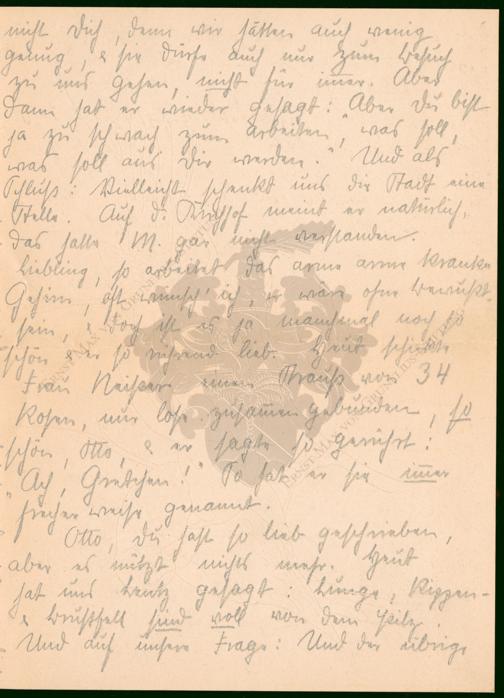 nicht dich, denn wir hätten auch wenig
genug, & sie dürfe auch nur zum Besuch
zu uns gehen, nicht für immer. Aber
dann hat er wieder gesagt: Aber Du bist
ja zu schwach zum arbeiten, was soll,
was soll aus Dir werden." Und als
Schluß: Vielleicht schenkt uns die Stadt eine
Stelle. Auf d. Kirchhof meint er natürlich,
das hatte M. gar nicht verstanden.
Liebling, so arbeitet das arme arme kranke
Gehirn, oft wünsch' ich, er wäre ohne Bewußt-
sein, & doch ist es ja manchmal noch so
schön & er so rührend lieb. Heut schickte
Frau Neisser einen Strauß von 34
Rosen, nur lose zusammengebunden, so
schön, Otto, & er sagte so gerührt:
"Ach, Gretchen!" So hat er sie immer
frecher weise genannt.
Otto, Du hast so lieb geschrieben,
aber es nützt nichts mehr. Heut
hat uns Lentz gesagt: Lunge, Rippen-
& Brustfell sind voll von dem Pilz.
Und auf unsere Frage: Und der übrige